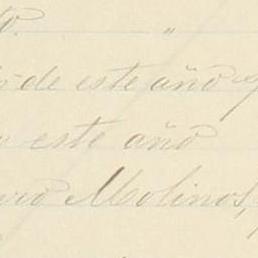 to. "
de este año
este año
Molinos,